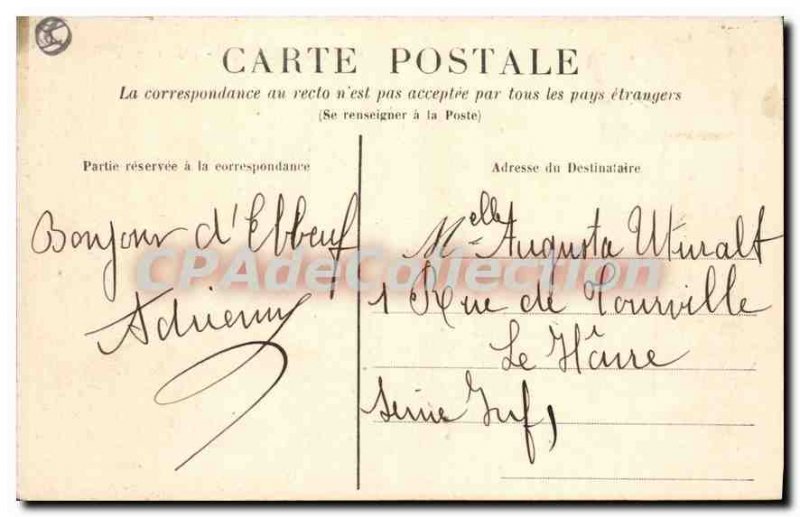 CARTE POSTALE
La correspondance au recto n'est pas acceptée par tous les pays étrangers
(Se renseigner à la Poste)
Partie réservée à la correspondance
Bonjour d'Elbeuf
Adrienne
Adresse du Destinataire
Melle Augusta
1 Rue de Tourville
Le Hâvre
Seine Inf
CPAdeCollection